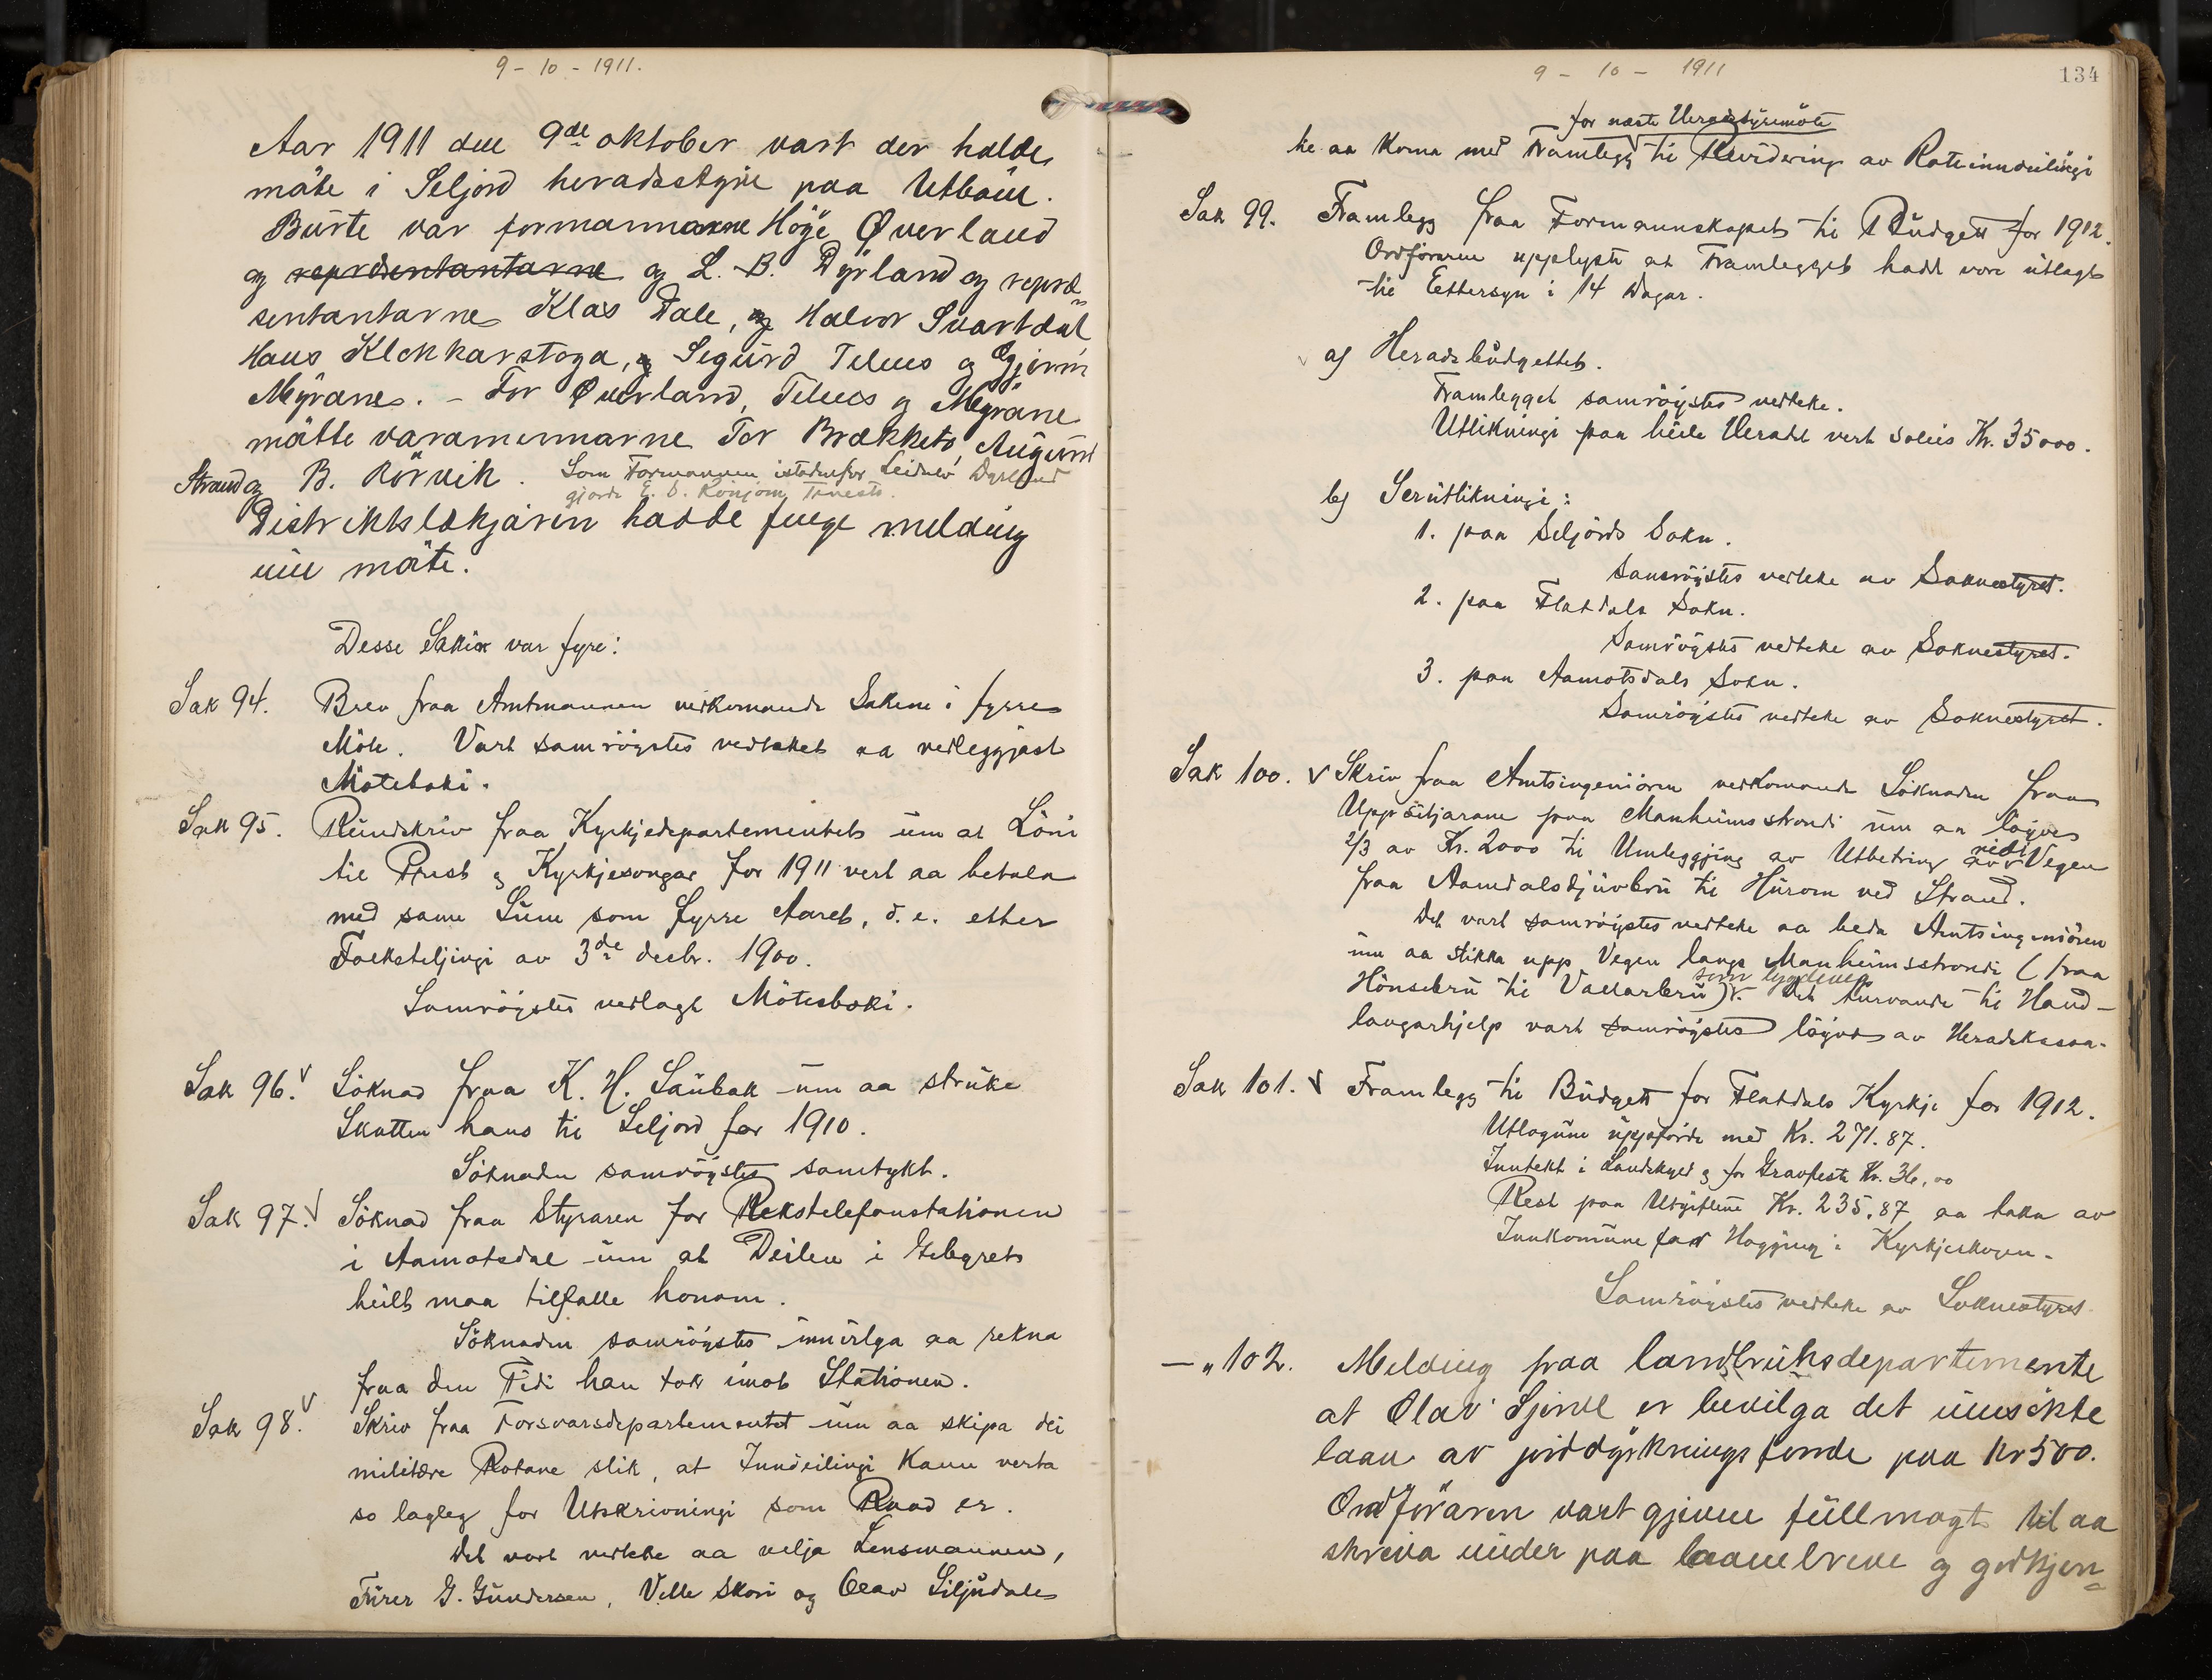 9 - 10 - 1911.
Aar 1911 den 9de oktober vart der halde
møte i Seljord heradsstyre paa Utbøen.
Burte var formannanne Høye Øverland
og repræsentantarne og L. B. Dyrland og repræ=
sentantarne Klas Dale, og Halvor Svartdal
Hans Klokkarstoga, og Segurd Telnes og Gjermu
Myrane. - For Øverland, Telnes og Myrane
møtte varamennarne Tor Brækketo, Augund
Strand og B. Rørvik. Som Formannen istadenfor Leidulv Dyrland
gjorde E. O. Konjom Tenest.
Distriktslækjaren hadde fenge melding
um møte.
Desse Sakir var fyre:
Sak 94. Brev fraa Amtmannen vedkomande Sakene i fyrre
Møte. Vart samrøystes vedteket aa vedleggjast
Møteboki.
Sak 95. Rundskriv fraa Kyrkjedepartementet um at Løni
til Prest og Kyrkjesongar for 1911 vert aa betala
med same Sum som fyrre Aaret, d. e. etter
Folketeljingi av 3de decbr. 1900.
Samrøystes vedlagt Møtesboki.
Sak 96. v Søknad fraa K. H. Saubak um aa struke
Skatten hans til Seljord for 1910.
Søknaden samrøystes samtykt.
Sak 97. v Søknad fraa Styraren for Rekstelefonstationen
i Aamotsdal um at Deilen i Gebyret
heilt maa tilfalle honom.
Søknaden samrøystes innvilga aa rekna
fraa den Tidi han tok imot Stationen.
Sak 98. v Skriv fraa Forsvarsdepartementet um aa skipa dei
militære Rotane slik, at Inndeilingi kann verta
so lagleg for Utskrivningi som Raad er.
Det vart vedteke aa velja Lensmannen,
Furer G. Gundersen, Velle Skori og Olav Siljudalen
9 - 10 - 1911
134
for næste Heradstyremøte
te aa koma med Framlegg til Revidering av Roteinndeilingi
Sak 99. Framlegg fraa Formannskapet til Budgett for 1912.
Ordføraren upplyste at Framlegget hadde vore utlagt
til Ettersyn i 14 Dagar.
v a) Heradsbudgettet.
Framlegget samrøystes vedteke.
Utlikningi paa heile Heradet vert soleis Kr. 35000.
b) Serutlikningi:
1. paa Seljords Sokn.
Samrøystes vedteke av Soknestyret.
2. paa Flatdals Sokn.
Samrøystes vedteke av Soknestyret.
3. paa Aamotsdals Sokn.
Samrøystes vedteke av Soknestyret.
Sak 100. v Skriv fraa Amtsingeniøren vedkomande Søknaden fraa
Uppsitjarane paa Manheimsstrondi um aa løyve
2/3 av Kr. 2000 til Umleggjing av Utbetring av Vegen
fraa Aamdalsdjuvbru til Hurom ved Strand.
Det vart samrøystes vedteke aa beda Amtsingeniøren
um aa stikka upp Vegen langs Manheimsstrondi (fraa
som bygdeveg
Hønsebru til Vallarbru) v. Det turvande til Hand-
langarhjelp vart samrøystes løyvt av Heradskassa.
Sak 101. v Framlegg til Budgett for Flatdals Kyrkje for 1912.
Utlogune uppførde med Kr. 271.87.
Inntekt i Landskyld og for Gravfeste Kr. 36,00
Rest paa Utgiftene Kr. 235,87 aa taka av
Innkomune for Hoggjing i Kyrkjeskogen.
Samrøystes vedteke av Soknestyret
— „ 102. Melding fraa landbruksdepartemente
at Olav Gjernd er bevilga det umsøkte
laan av jorddyrkningsfonde paa kr 500.
Ordføraren vart gjeven fullmagt til aa
skreva under paa laanebreve og godkjen=